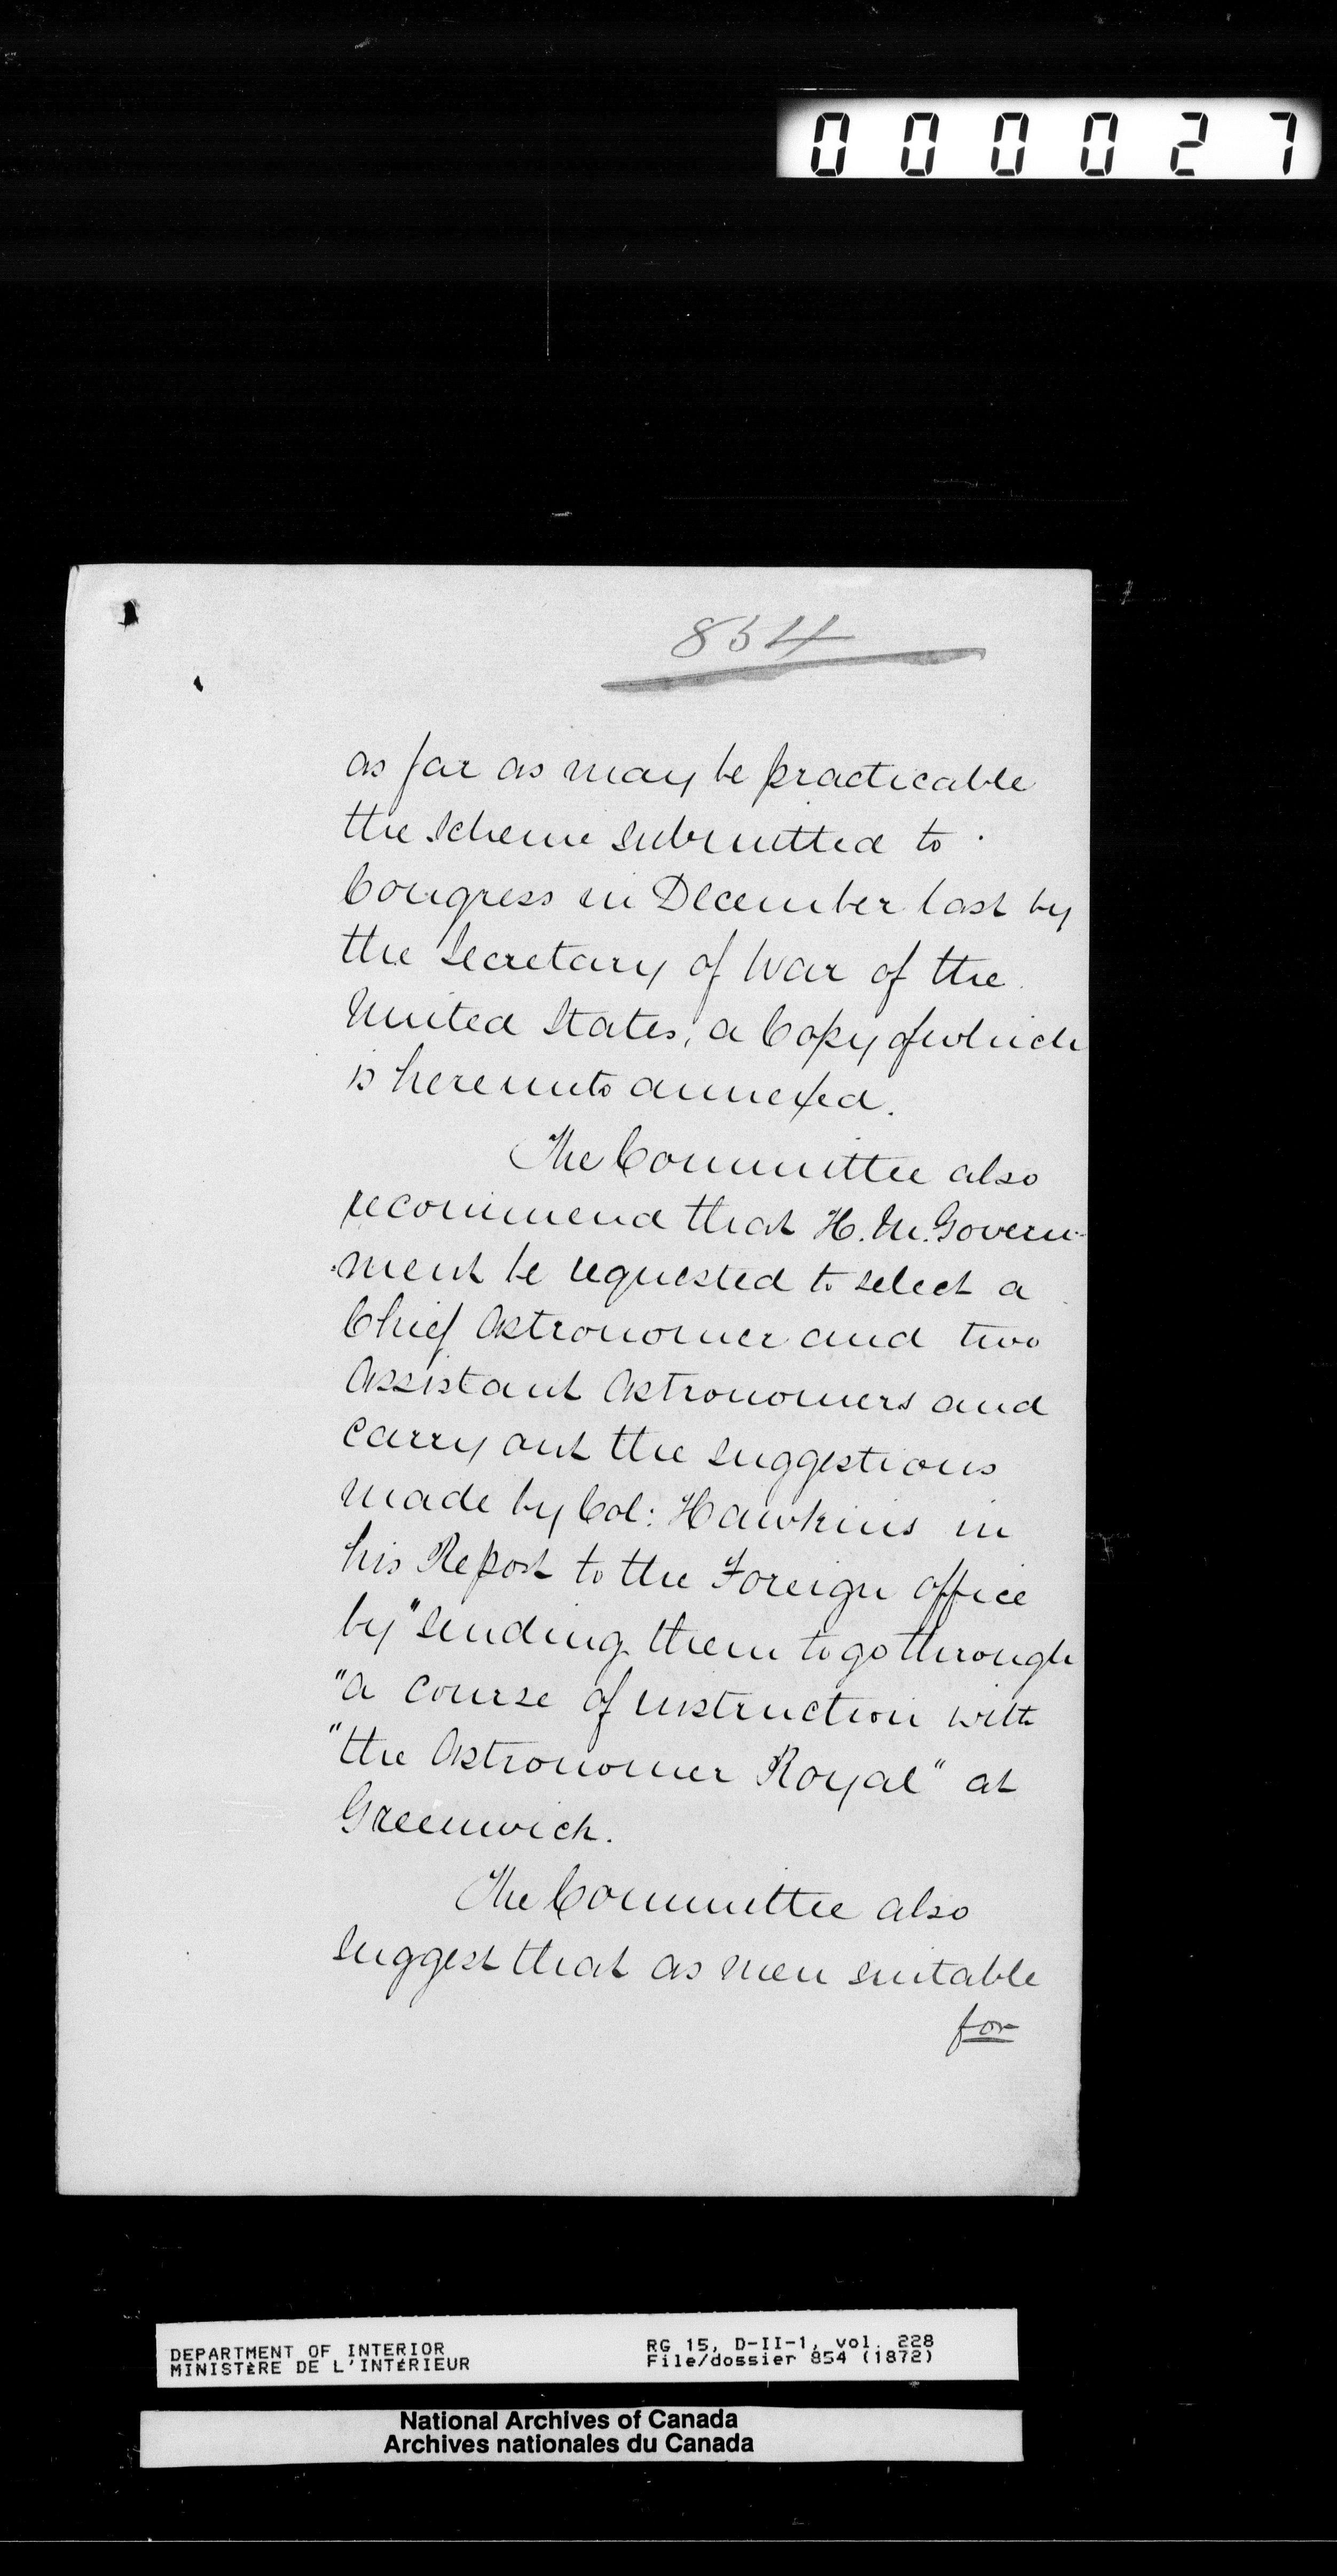 000027
854
as far as may be practicable
the scheme submitted to
Congress in December last by
the Secretary of War of the
United States, a Copy of which
is hereunto annexed.
The Committee also
recommend that H. M. Govern-
-ment be requested to select a
Chief Astronomer and two
Assistant Astronomers and
carry out the suggestions
made by Col: Hawkins in
his Report to the Foreign Office
by "sending them to go through
"a course of instruction with
"the Astronomer Royal" at
Greenwich.
The Committee also
suggest that as men suitable
for
DEPARTMENT OF INTERIOR
MINISTÈRE DE L'INTÉRIEUR
RG 15, D-II-1, vol. 228
File/dossier 854 (1872)
National Archives of Canada
Archives nationales du Canada